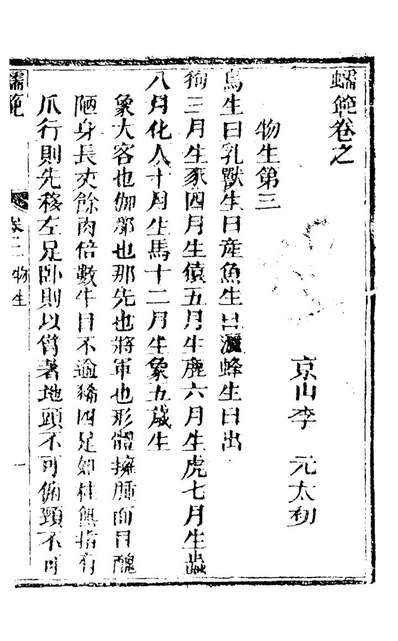 蠕範卷之
物生第三
京山李 元太初
鳥生曰乳獸生曰産魚生曰灑蜂生曰出
狗三月生豕四月生猿五月生鹿六月生虎七月生蟲
八月化人十月生馬十二月生象五歲生
象大客也伽那也那先也將軍也形體擁腫面目醜
陋身長丈餘肉倍數牛目不逾豨四足如柱無指有
爪行則先移左足卧則以臂著地頭不可俯頸不可
蠕範
卷二 物生
一